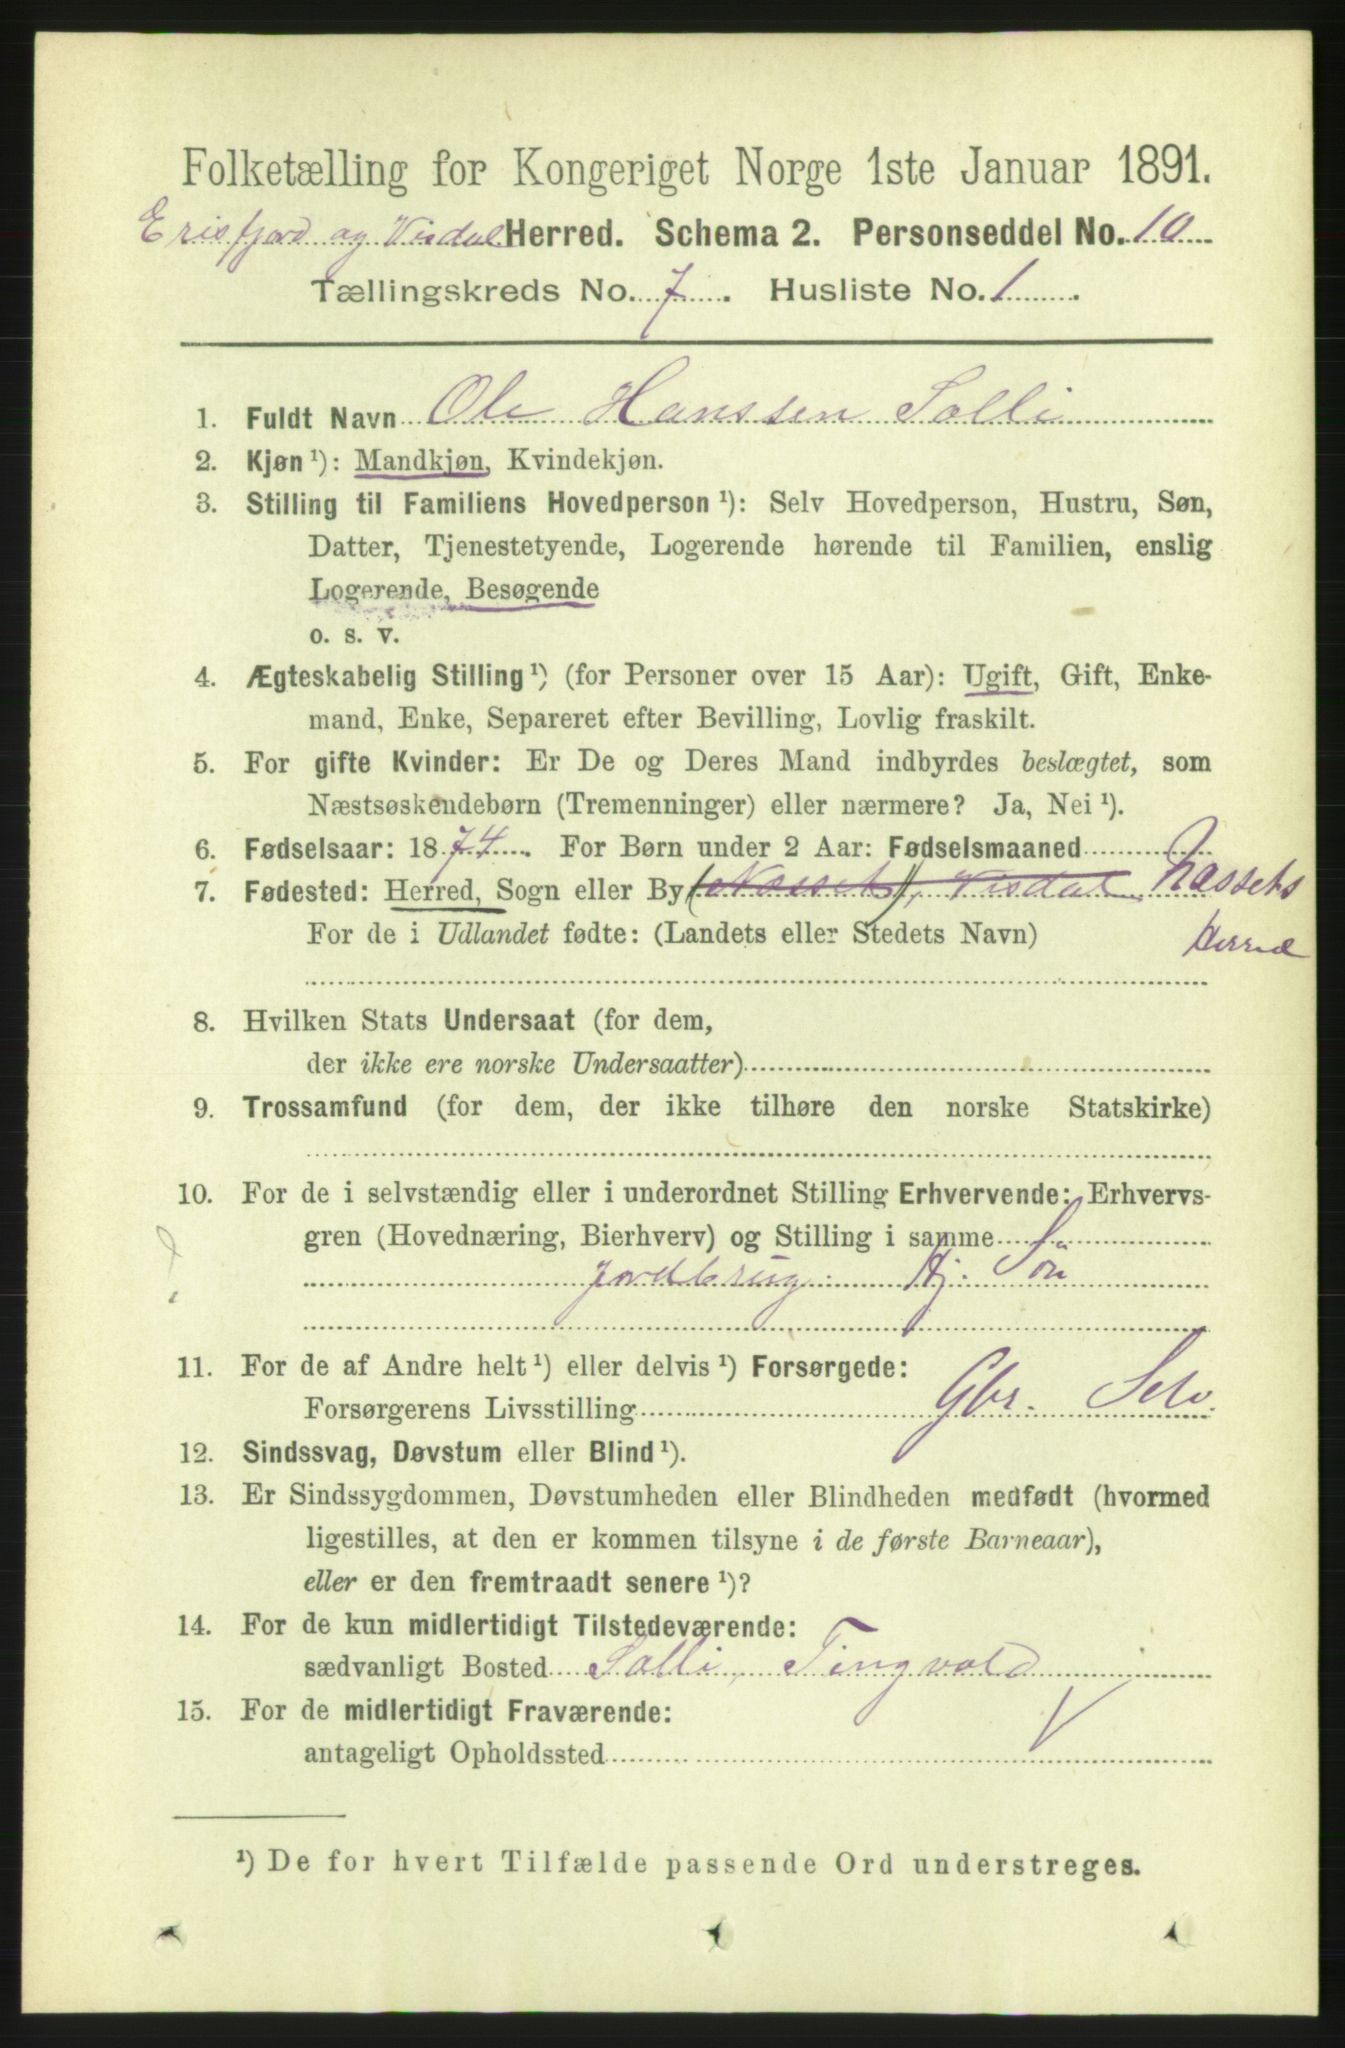 Folketælling for Kongeriget Norge 1ste Januar 1891.
Erisfjord og Visdal Herred. Schema 2. Personseddel No. 10
Tællingskreds No. 7. Husliste No. 1.
1. Fuldt Navn Ole Hanssen Solli
2. Kjøn ¹): Mandkjøn, Kvindekjøn.
3. Stilling til Familiens Hovedperson ¹): Selv Hovedperson, Hustru, Søn,
Datter, Tjenestetyende, Logerende hørende til Familien, enslig
Logerende, Besøgende
o. s. v.
4. Ægteskabelig Stilling ¹) (for Personer over 15 Aar): Ugift, Gift, Enke-
mand, Enke, Separeret efter Bevilling, Lovlig fraskilt.
5. For gifte Kvinder: Er De og Deres Mand indbyrdes beslægtet, som
Næstsøskendebørn (Tremenninger) eller nærmere? Ja, Nei ¹).
6. Fødselsaar: 1874. For Børn under 2 Aar: Fødselsmaaned
7. Fødested: Herred, Sogn eller By (Næsset), Visdal Næssets
For de i Udlandet fødte: (Landets eller Stedets Navn) Herred
8. Hvilken Stats Undersaat (for dem,
der ikke ere norske Undersaatter)
9. Trossamfund (for dem, der ikke tilhøre den norske Statskirke)
10. For de i selvstændig eller i underordnet Stilling Erhvervende: Erhvervs-
gren (Hovednæring, Bierhverv) og Stilling i samme
Jordbrug. Hj. Søn
11. For de af Andre helt ¹) eller delvis ¹) Forsørgede:
Forsørgerens Livsstilling Gbr. Selv.
12. Sindssvag, Døvstum eller Blind ¹).
13. Er Sindssygdommen, Døvstumheden eller Blindheden medfødt (hvormed
ligestilles, at den er kommen tilsyne i de første Barneaar),
eller er den fremtraadt senere ¹)?
14. For de kun midlertidigt Tilstedeværende:
sædvanligt Bosted Solli, Tingvold
15. For de midlertidigt Fraværende:
antageligt Opholdssted
¹) De for hvert Tilfælde passende Ord understreges.